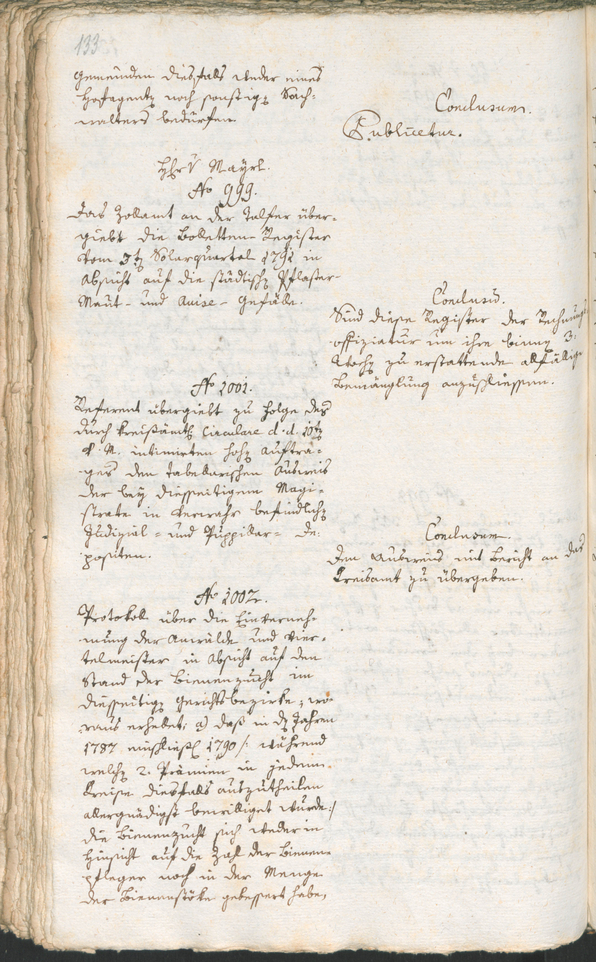 133
gemeinden diesfalls weder eines
Hofagentz noch sonstigz Sach-
walters bedürfen.
Conclusum.
Publicetur.
Hhr v Mayrl.
No 999.
Das Zollamt an der Talfer über-
giebt die Bolleten-Register
vom 3tz Solarquartal 1791 in
Absicht auf die städtischz Pflaster-
Maut- und Avise-Gefälle.
Conclus.
Sind diese Register der Rechnungs
offiziatur um ihre binnz 3.
Wochz zu erstattende allfällige
Bemänglung anzuschliessen.
No 1001.
Referent übergiebt zu Folge des
durch kreisämtl Circulare d. d. 10tz
intimirten hohz Auftra-
ges den tabellarischen Ausweis
der bey diesseitigem Magi-
strate in Verwahr befindlichz
Judizial- und Puppillar- De-
positen.
Conclusum
Den Ausweis mit Bericht an das
Kreisamt zu übergeben.
No 1002.
Protokoll über die Einverneh-
mung der Anwälde und Vier-
telmeister in Absicht auf den
Stand der Bienenzucht im
diesseitigz Gerichtsbezirke; wo-
raus erhellet; a) daß in dz Jahren
1787 einschließl 1790 /: während
welchz 2. Prämien in jedem
Kreise diesfalls auszutheilen
allergnädigst bewilliget wurde :/
die Bienenzucht sich weder in
Hinsicht auf die Zahl der Bienen-
pfleger noch in der Menge
der Bienenstöke gebessert habe,